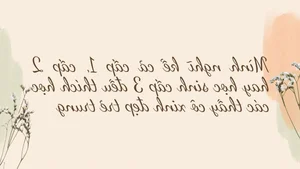 Mình nghĩ kể cả cấp 1, cấp 2
hay học sinh cấp 3 đều thích học
các thầy cô xinh đẹp trẻ trung